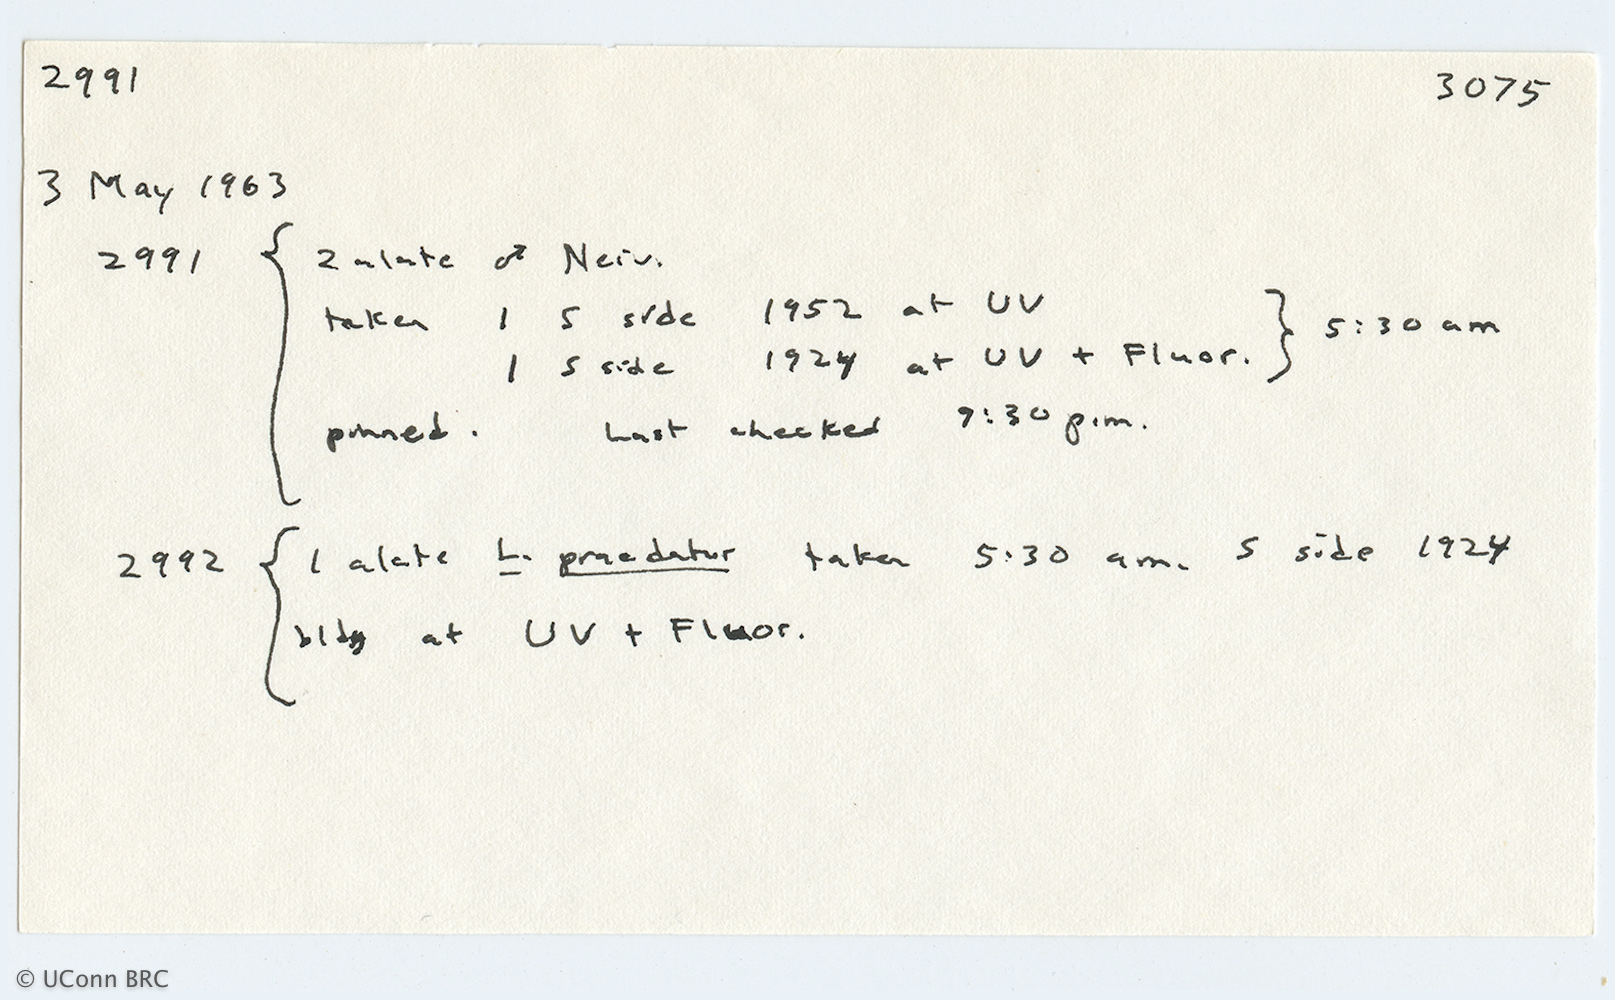 2991 3075
3 May 1963
2991 { 2 alate ♂ Neiv.
taken 1 S side 1952 at UV
1 S side 1924 at UV + Fluor. } 5:30 am
pinned. Last checked 9:30 p.m.
2992 { 1 alate L. praedator taken 5:30 am. S side 1924
bldg at UV + Fluor.
© UConn BRC